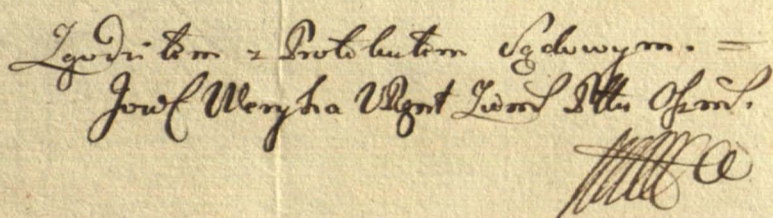 Zgodziłem z Protokułem Sądowym. =
Józef Weryha Regent Ziem: Pttu Oszm: